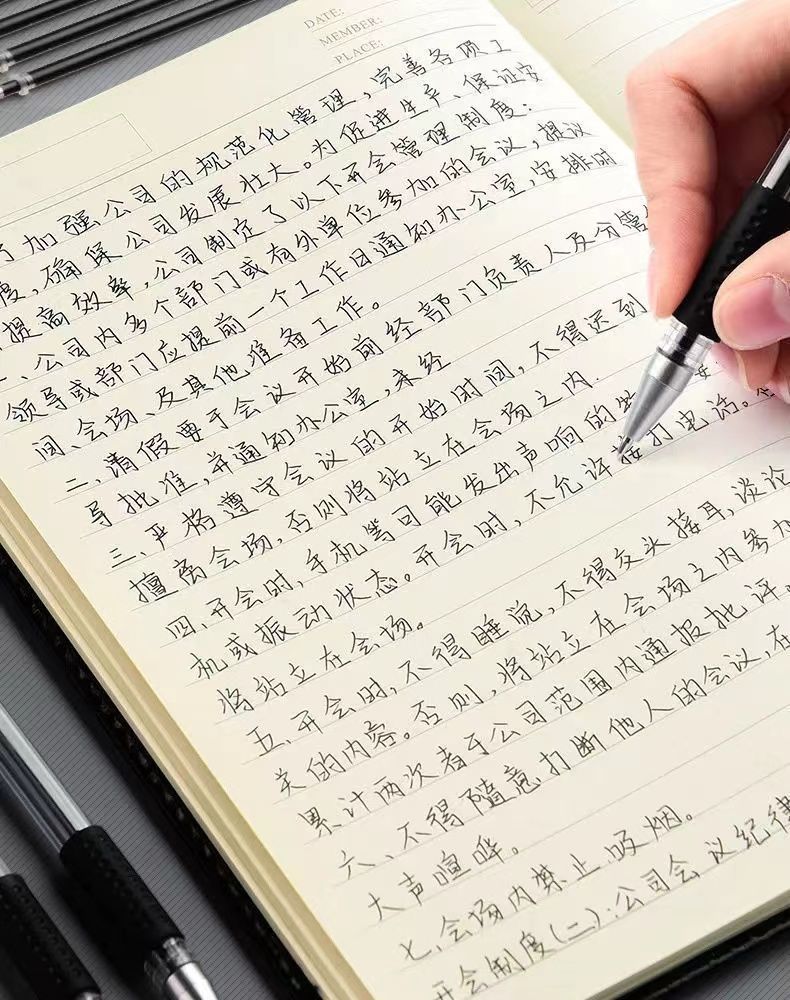 DATE:
MEMBER:
PLACE:
加强公司的规范化管理，完善各项工
度，确保公司发展壮大。为促进生产、保证安
提高效率，公司制定了以下开会管理制度：
一、公司内多个部门或有外单位参加的会议，提议
领导或部门应提前一个工作日通知办公室，安排时
间、会场、及其他准备工作。
二、请假要于会议开始前经部门负责人及分管
导批准，并通知办公室，未经
三、严格遵守会议的开始时间，不得迟到
擅离会场，否则将站立在会场之内
四、开会时，手机等可能发出声响的
机或振动状态。开会时，不允许接打电话。
将站立在会场。
五、开会时，不得睡觉，不得交头接耳，谈论
关的内容。否则，将站立在会场之内参加
累计两次者于公司范围内通报批评。
六、不得随意打断他人的会议，在
大声喧哗。
七、会场内禁止吸烟。
开会制度(二)：公司会议纪律